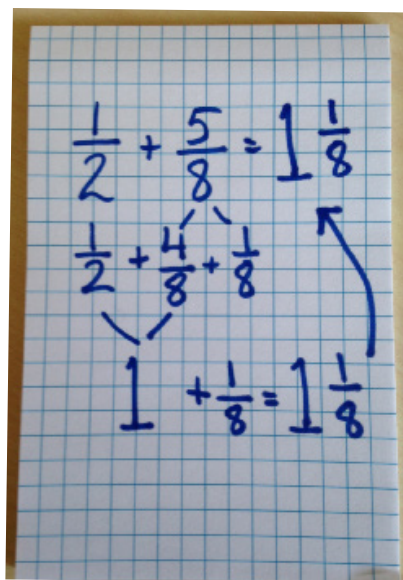 1/2 + 5/8 = 1 1/8
1/2 + 4/8 + 1/8
1 + 1/8 = 1 1/8